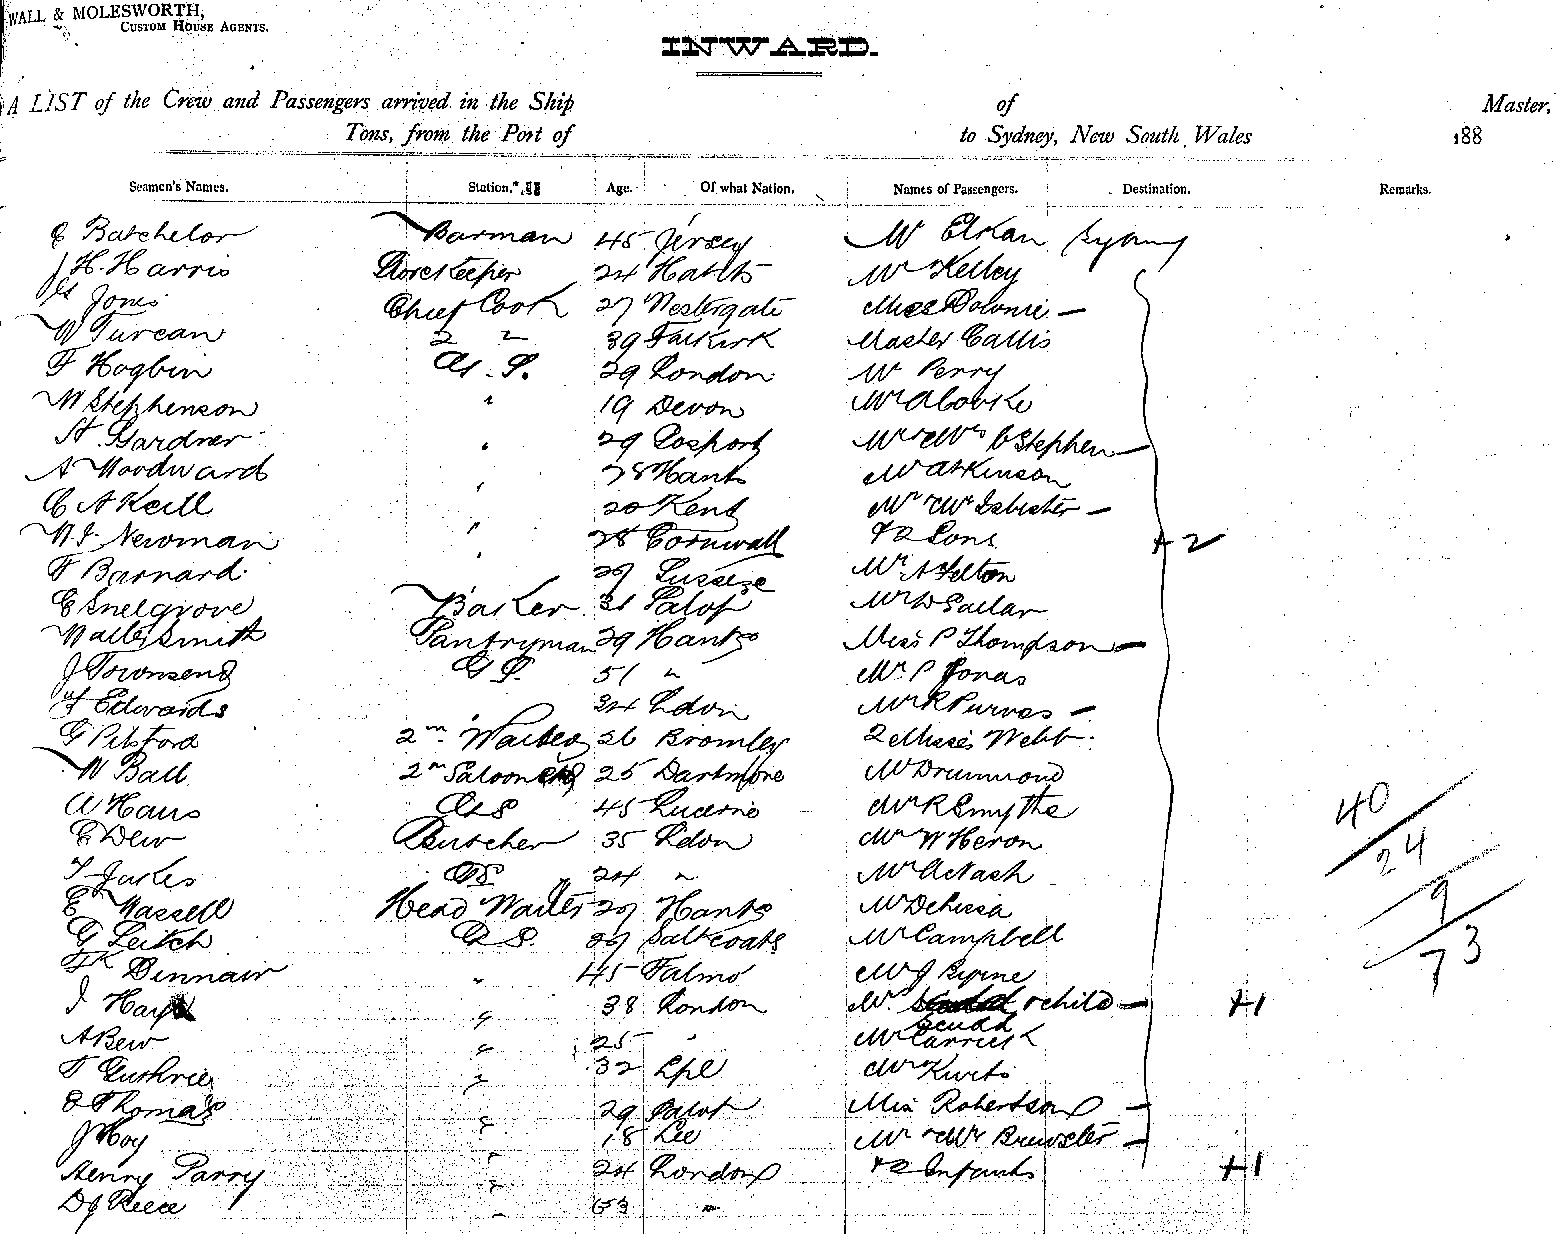 WALL & MOLESWORTH,
CUSTOM HOUSE AGENTS.
INWARD.
A LIST of the Crew and Passengers arrived in the Ship of Master,
Tons, from the Port of to Sydney, New South Wales 188
Seamen's Names. Station. Age. Of what Nation. Names of Passengers. Destination. Remarks.
E Batchelor Barman 45 Jersey Mr Elkan Sydney
J H. Harris Storekeeper 24 Hants Mr Kelley
Jones Chief Cook 27 Westergate Miss —
W Turcan 2 " 39 Falkirk Master Callis
F Hogbin G. S. 29 London Mr Perry
W Stephenson " 19 Devon Mr
H Gardner " 29 Gosport Mr & Mrs C Stephen —
A Woodward " 28 Hants Mr Atkinson
C A Keill 20 Kent Mr & Mrs Isbister —
W. J. Newman " 28 Cornwall & 2 Sons +2
F Barnard " 29 Sussex Mr A Felton
E Snelgrove Baker 31 Salop Mr D Sailar
Walter Smith Pantryman 29 Hants Miss P Thompson —
J Townsend G S. 51 " Mr P Jonas
Edwards " 34 Ldon Mr R Purves —
G Pilsford 2nd Waiter 26 Bromley 2 Misses Webb
W Ball 2nd Saloon 25 Dartmore Mr Drummond
A Haus G S 45 Lucerne Mr R Smythe
E Dew Butcher 35 Ldon Mr W Heron
T Jukes G S 24 " Mr A Nash
E Wassell Head Waiter 29 Hants Mr Delissa
G Leitch G S. 29 Saltcoats Mr Campbell
Dinnair " 45 Falmo Mr J Byrne
J " 38 London Mr & child — +1
Scudd
A Bew " 25 " Mr Carrick
F Guthrie " 32 Lpl Mr Kurts
Thomas " 29 Salop Miss Robertson —
J Hoy " 18 Lee Mr & Mrs Brewster —
Henry Parry " 24 London & 2 Infants +1
D J Reece " 53 "
40
24
9
73